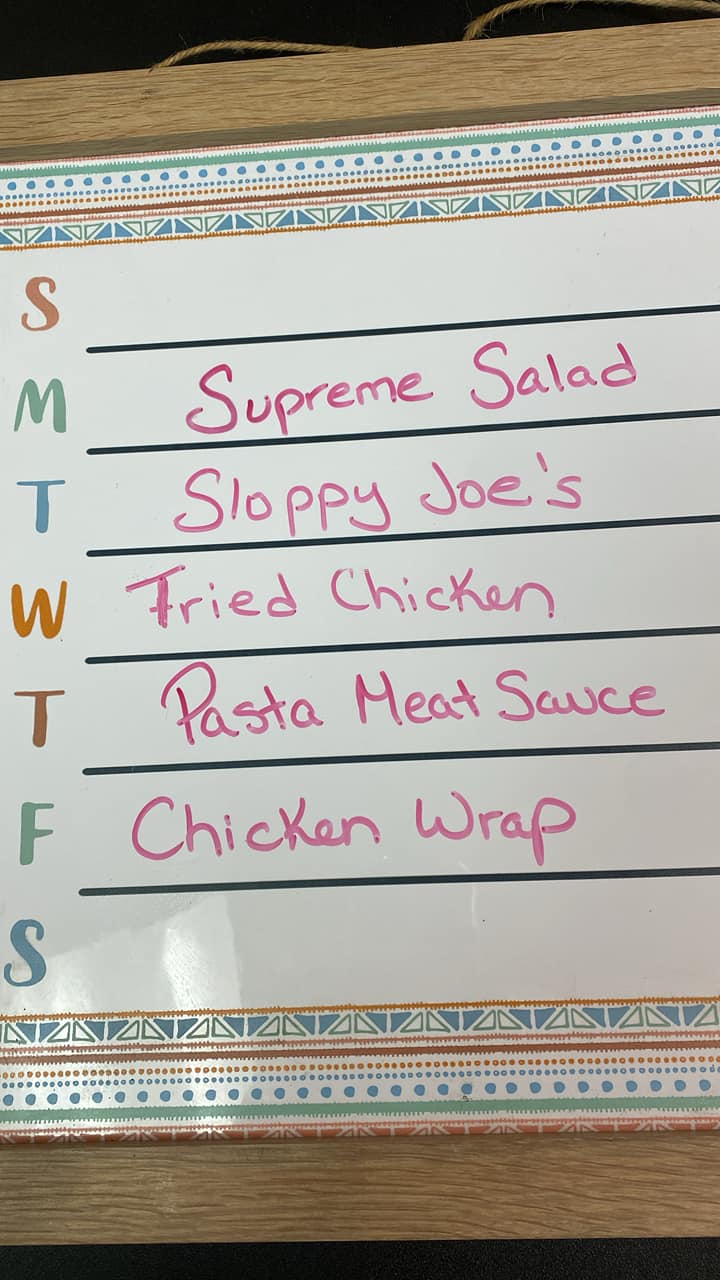 S
M Supreme Salad
T Sloppy Joe's
W Fried Chicken
T Pasta Meat Sauce
F Chicken Wrap
S